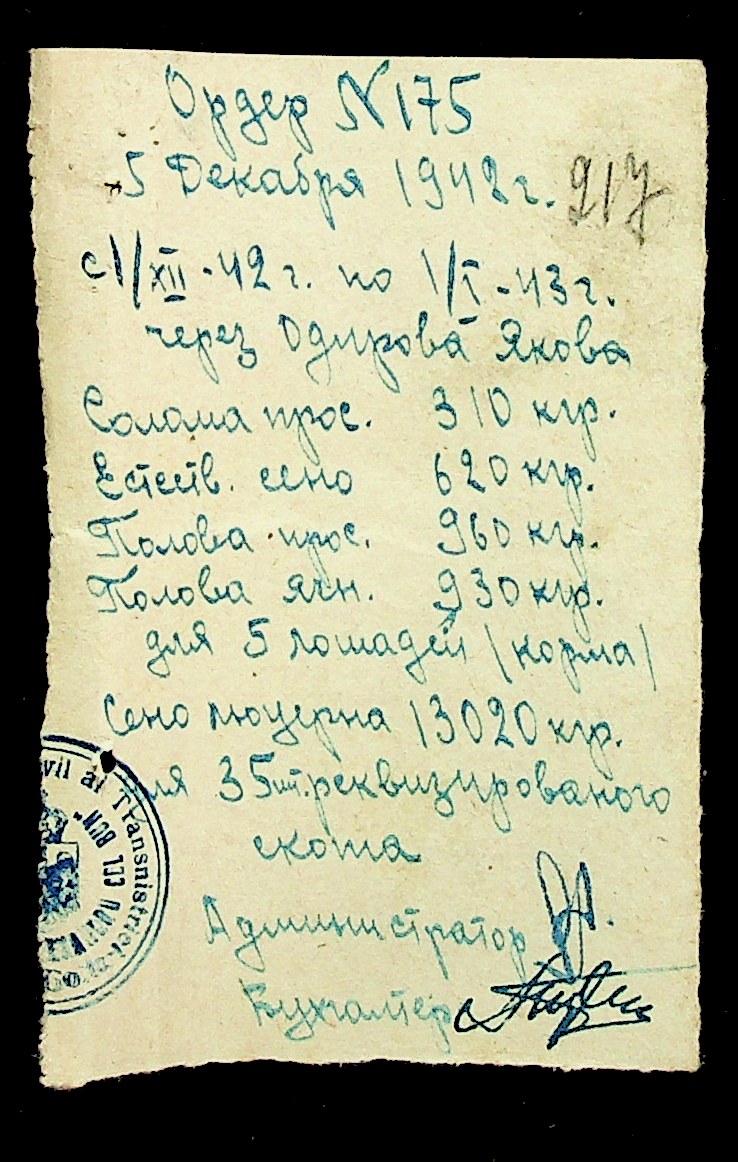 Ордер N 175
5 Декабря 1942 г. 217
с 1/XII - 42 г. по 1/I - 43 г.
через Одирова Якова
Солома прос. 310 кгр.
Естеств. сено 620 кгр.
Полова прос. 960 кгр.
Полова ячн. 930 кгр.
для 5 лошадей /корма/
Сено люцерна 13020 кгр.
для 35 шт. реквизированого
скота
Администратор
Бухгалтер
vil al Transnistriei